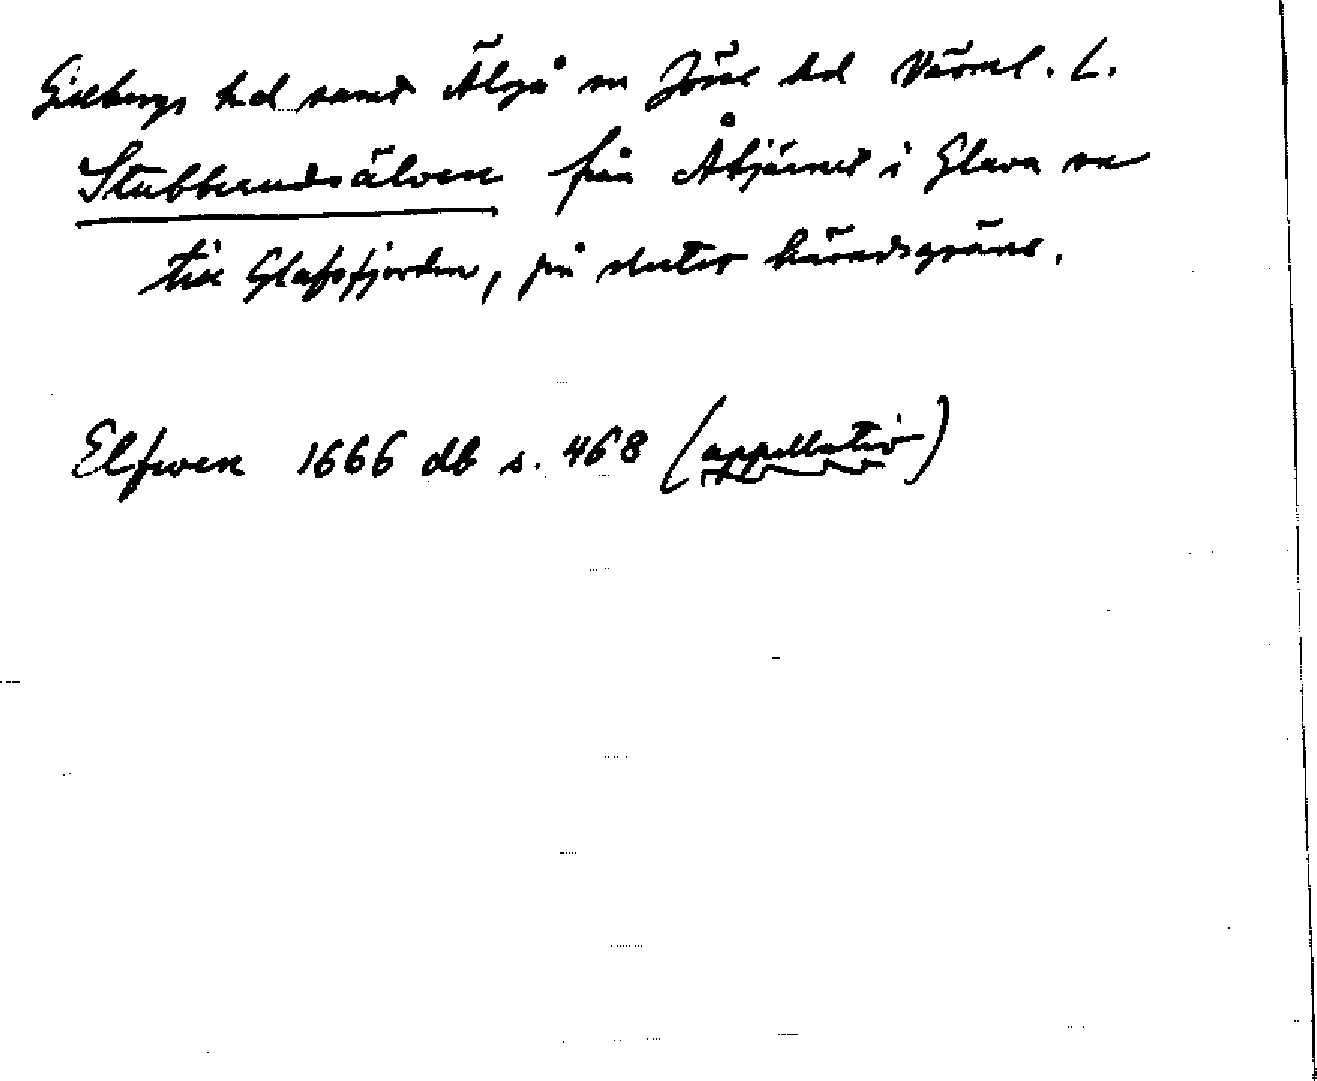 Gillbergs hd samt Älgå sn Jösse hd Värml. l.
Stubberudsälven från Åtjärnet i Glava sn
till Glafsfjorden, på slutet häradsgräns.
Elfwen 1666 db s. 468 (appellativ)